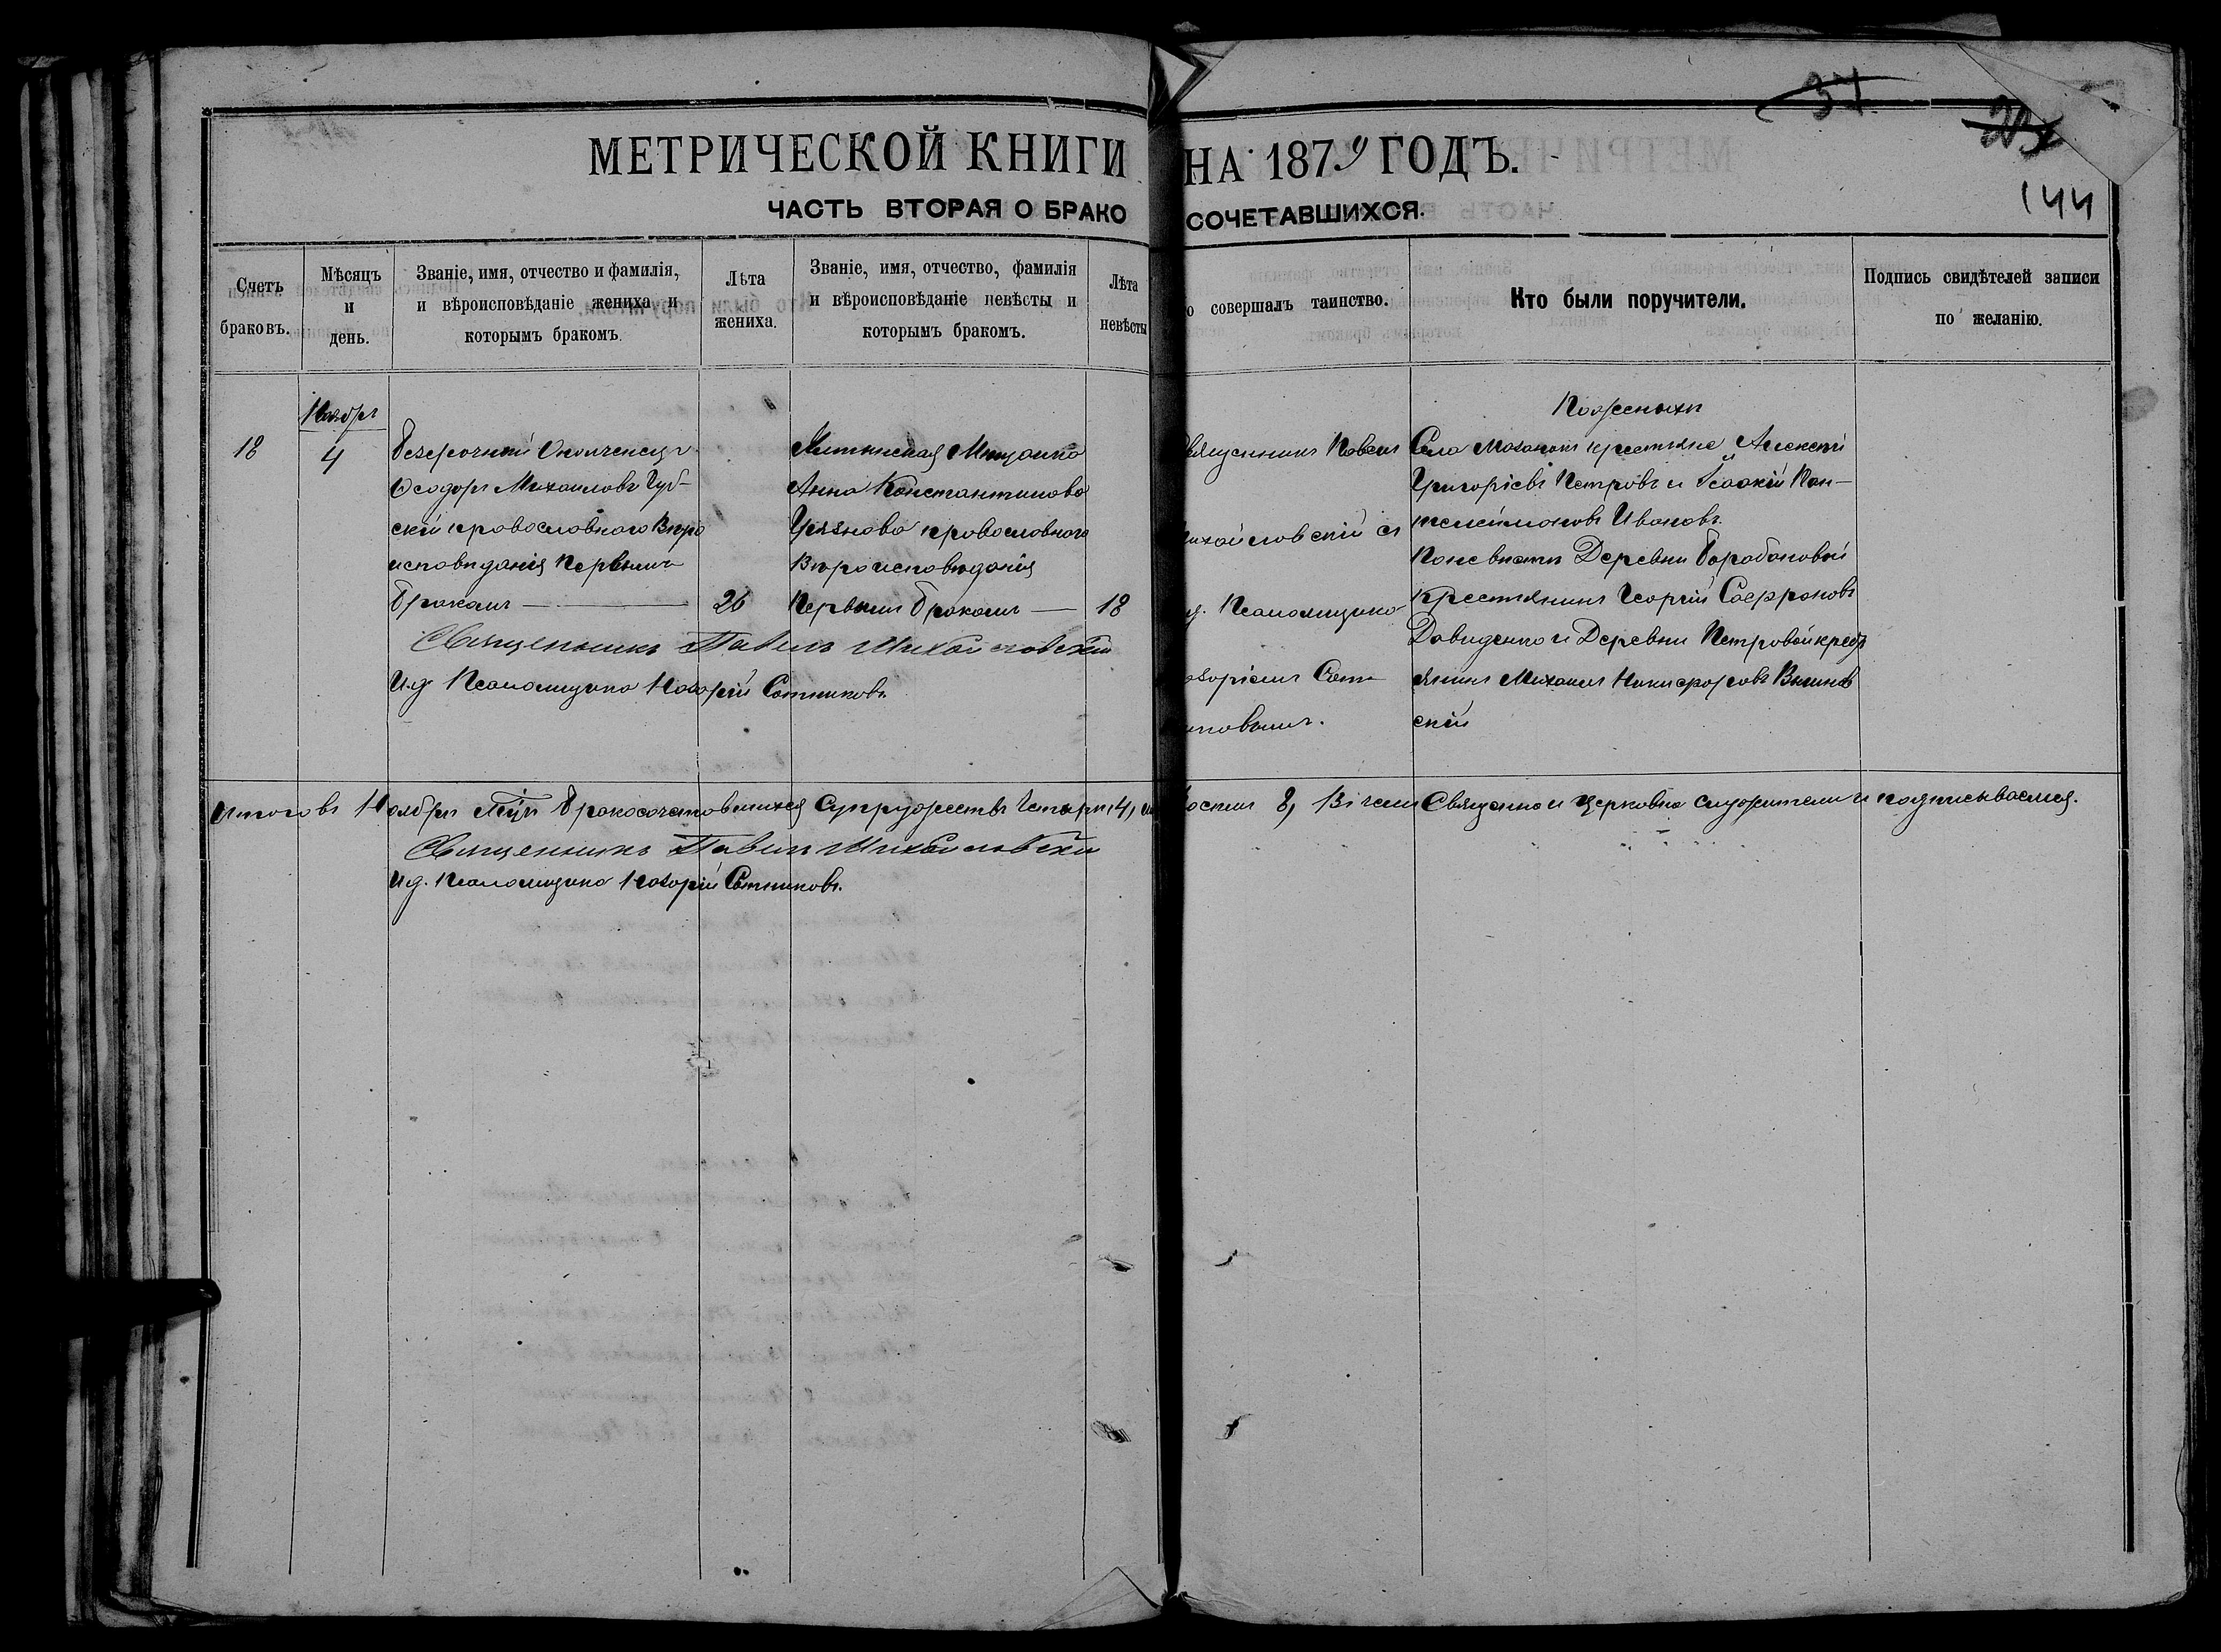 37
203
144
МЕТРИЧЕСКОЙ КНИГИ НА 1879 ГОДЪ.
ЧАСТЬ ВТОРАЯ О БРАКОСОЧЕТАВШИХСЯ.
Счетъ браковъ.
Мѣсяцъ и день.
Званіе, имя, отчество и фамилія,
и вѣроисповѣданіе жениха и
которымъ бракомъ.
Лѣта
жениха.
Званіе, имя, отчество, фамилія
и вѣроисповѣданіе невѣсты и
которымъ бракомъ.
Лѣта
невѣсты
о совершалъ таинство.
Кто были поручители.
Подпись свидѣтелей записи
по желанію.
18
Ноябрь
4
безсрочный Ополченецъ
Ѳеодоръ Михаиловъ Чуб-
скій православнаго Вѣро
исповѣданія Первымъ
бракомъ
26
Мѣщанка
Анна Константинова
православнаго
Вѣроисповѣданія
Первымъ бракомъ
18
вященникъ Павелъ
ихайловскій съ
д. Псаломщика
азаріемъ Сот-
никовымъ.
По женихѣ
Села крестьяне Алексѣй
Григоріевъ Петровъ и Ісаакій Пан-
телеймоновъ Ивановъ.
По невѣстѣ Деревни Барабановой
Крестьянинъ Георгій Сафроновъ
Давиденко и Деревни Петровой крест
янинъ Михаилъ Никифоровъ
скій
Священникъ Павелъ Михайловскій
И.д Псаломщика Назарій Сотниковъ
Итого въ Ноябрѣ М-цѣ бракосочетавшихся Супружествъ Четыре, 4,
8, Въ чемъ Священно и церковно служители и подписываемся.
Священникъ Павелъ Михайловскій
И.д. Псаломщика Назарій Сотниковъ.